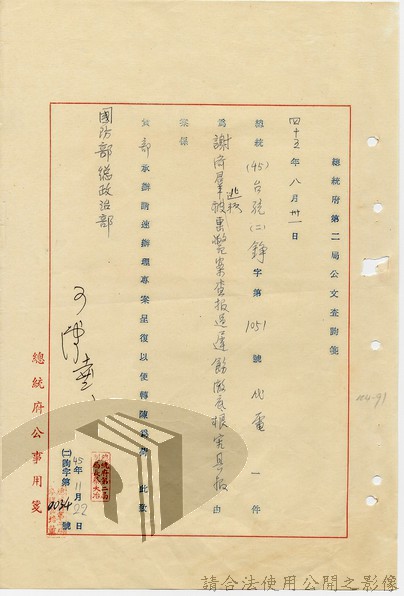 總統府第二局公文查詢箋
四十五年八月卅一日
總統(45)台統(二)錚字第1051號代電一件
為謝濟羣被惠斃案查報延遲飭澈底根究具報由
逃移
案係
貴部承辦請速辦理專案呈復以便轉陳為荷 此致
國防部總政治部
45年11月22日
(二)詢字第0034號
總統府公事用箋
114-91
請合法使用公開之影像